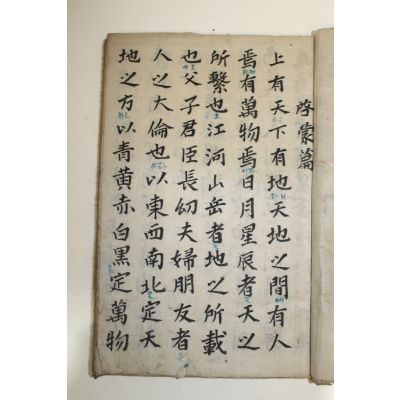 啓蒙篇
上有天下有地天地之間有人
焉有萬物焉日月星辰者天之
所繫也江河山岳者地之所載
也父子君臣長幼夫婦朋友者
人之大倫也以東西南北定天
地之方以青黃赤白黑定萬物